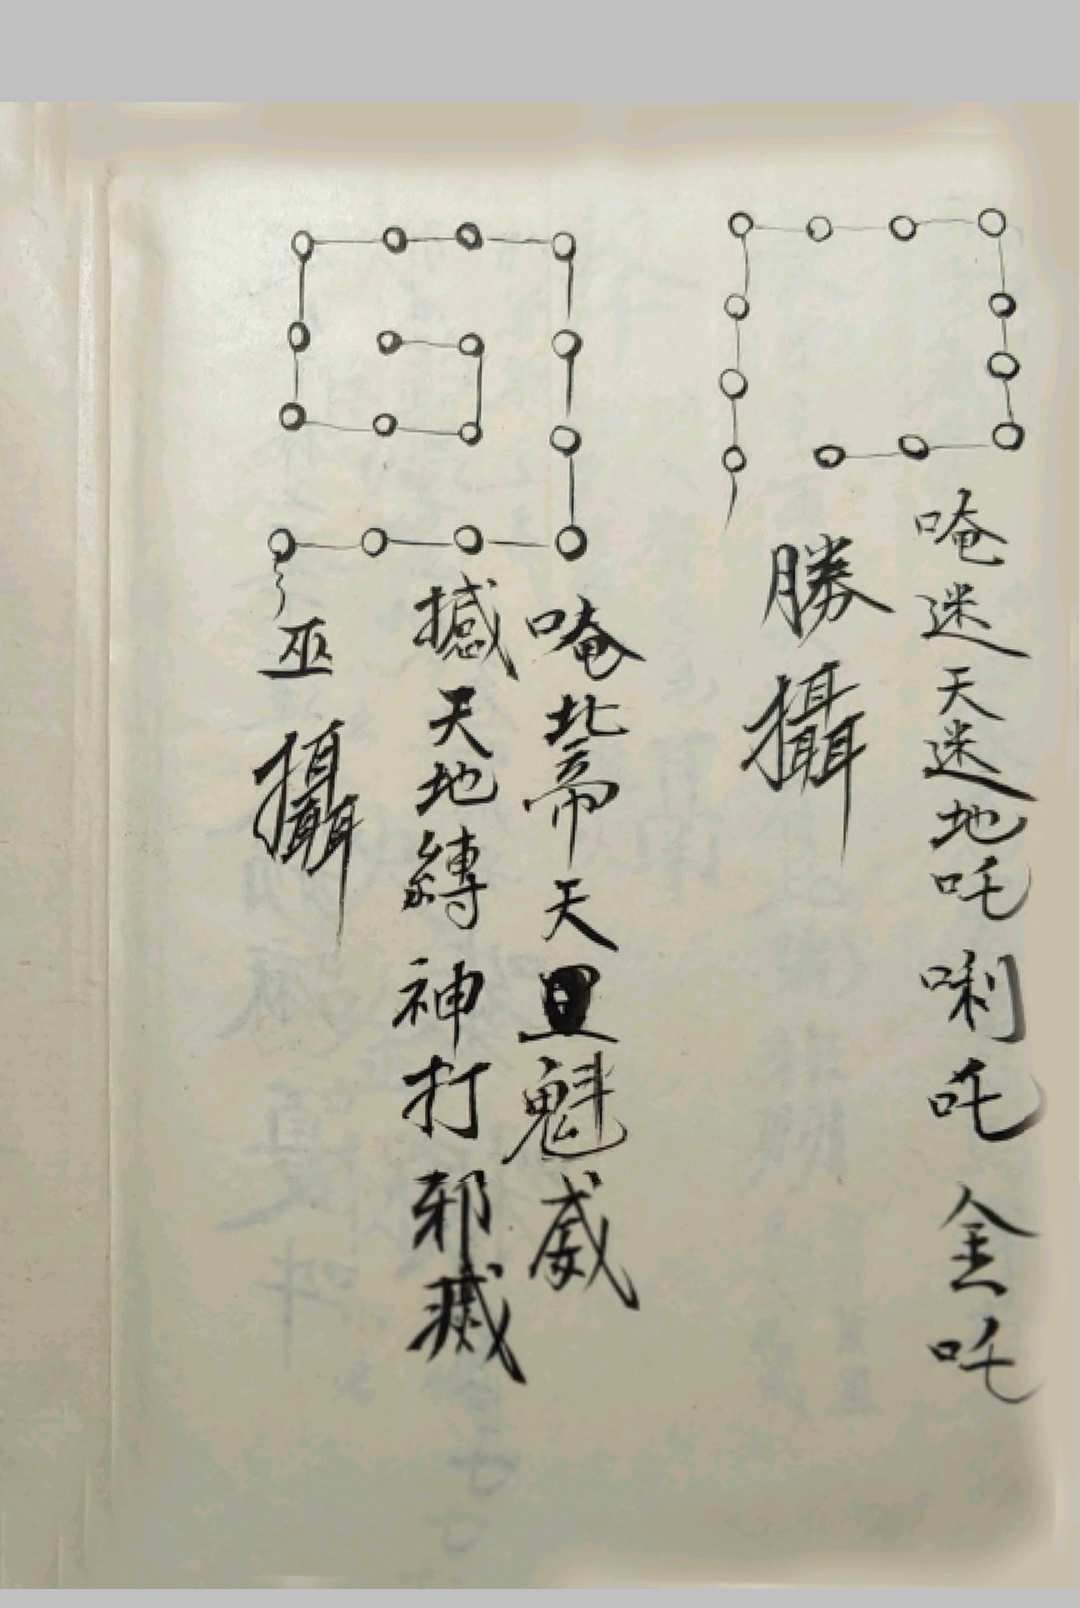 唵迷天迷地吒唎吒金吒
勝攝
唵紫天罡魁威
撼天地縛神打邪
巫攝